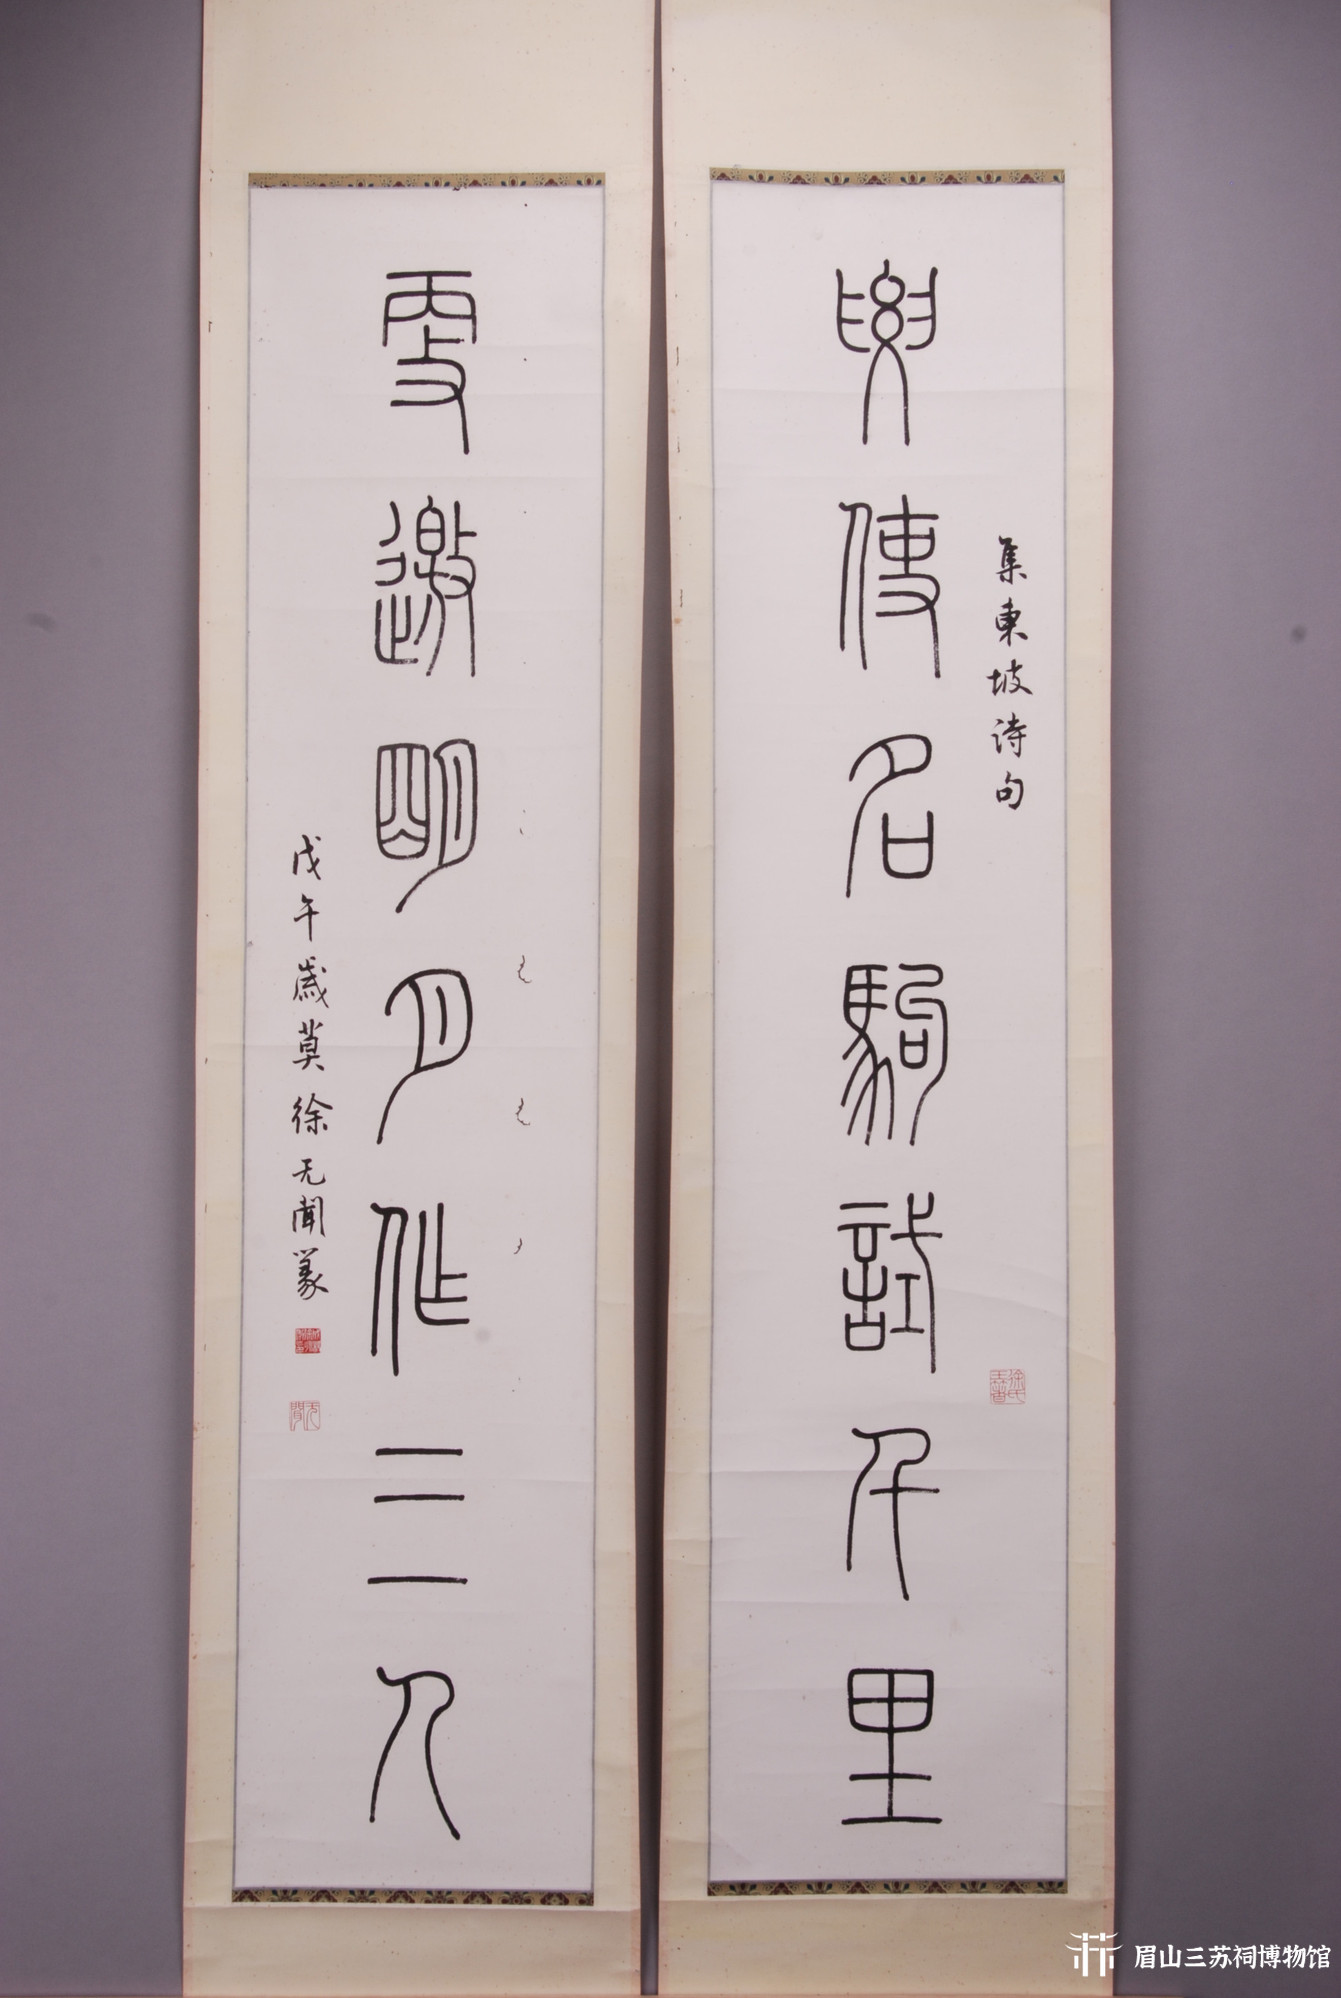 集東坡诗句
要使名駒試千里
更邀明月作三人
戊午歲莫徐无聞篆
无聞
眉山三苏祠博物馆